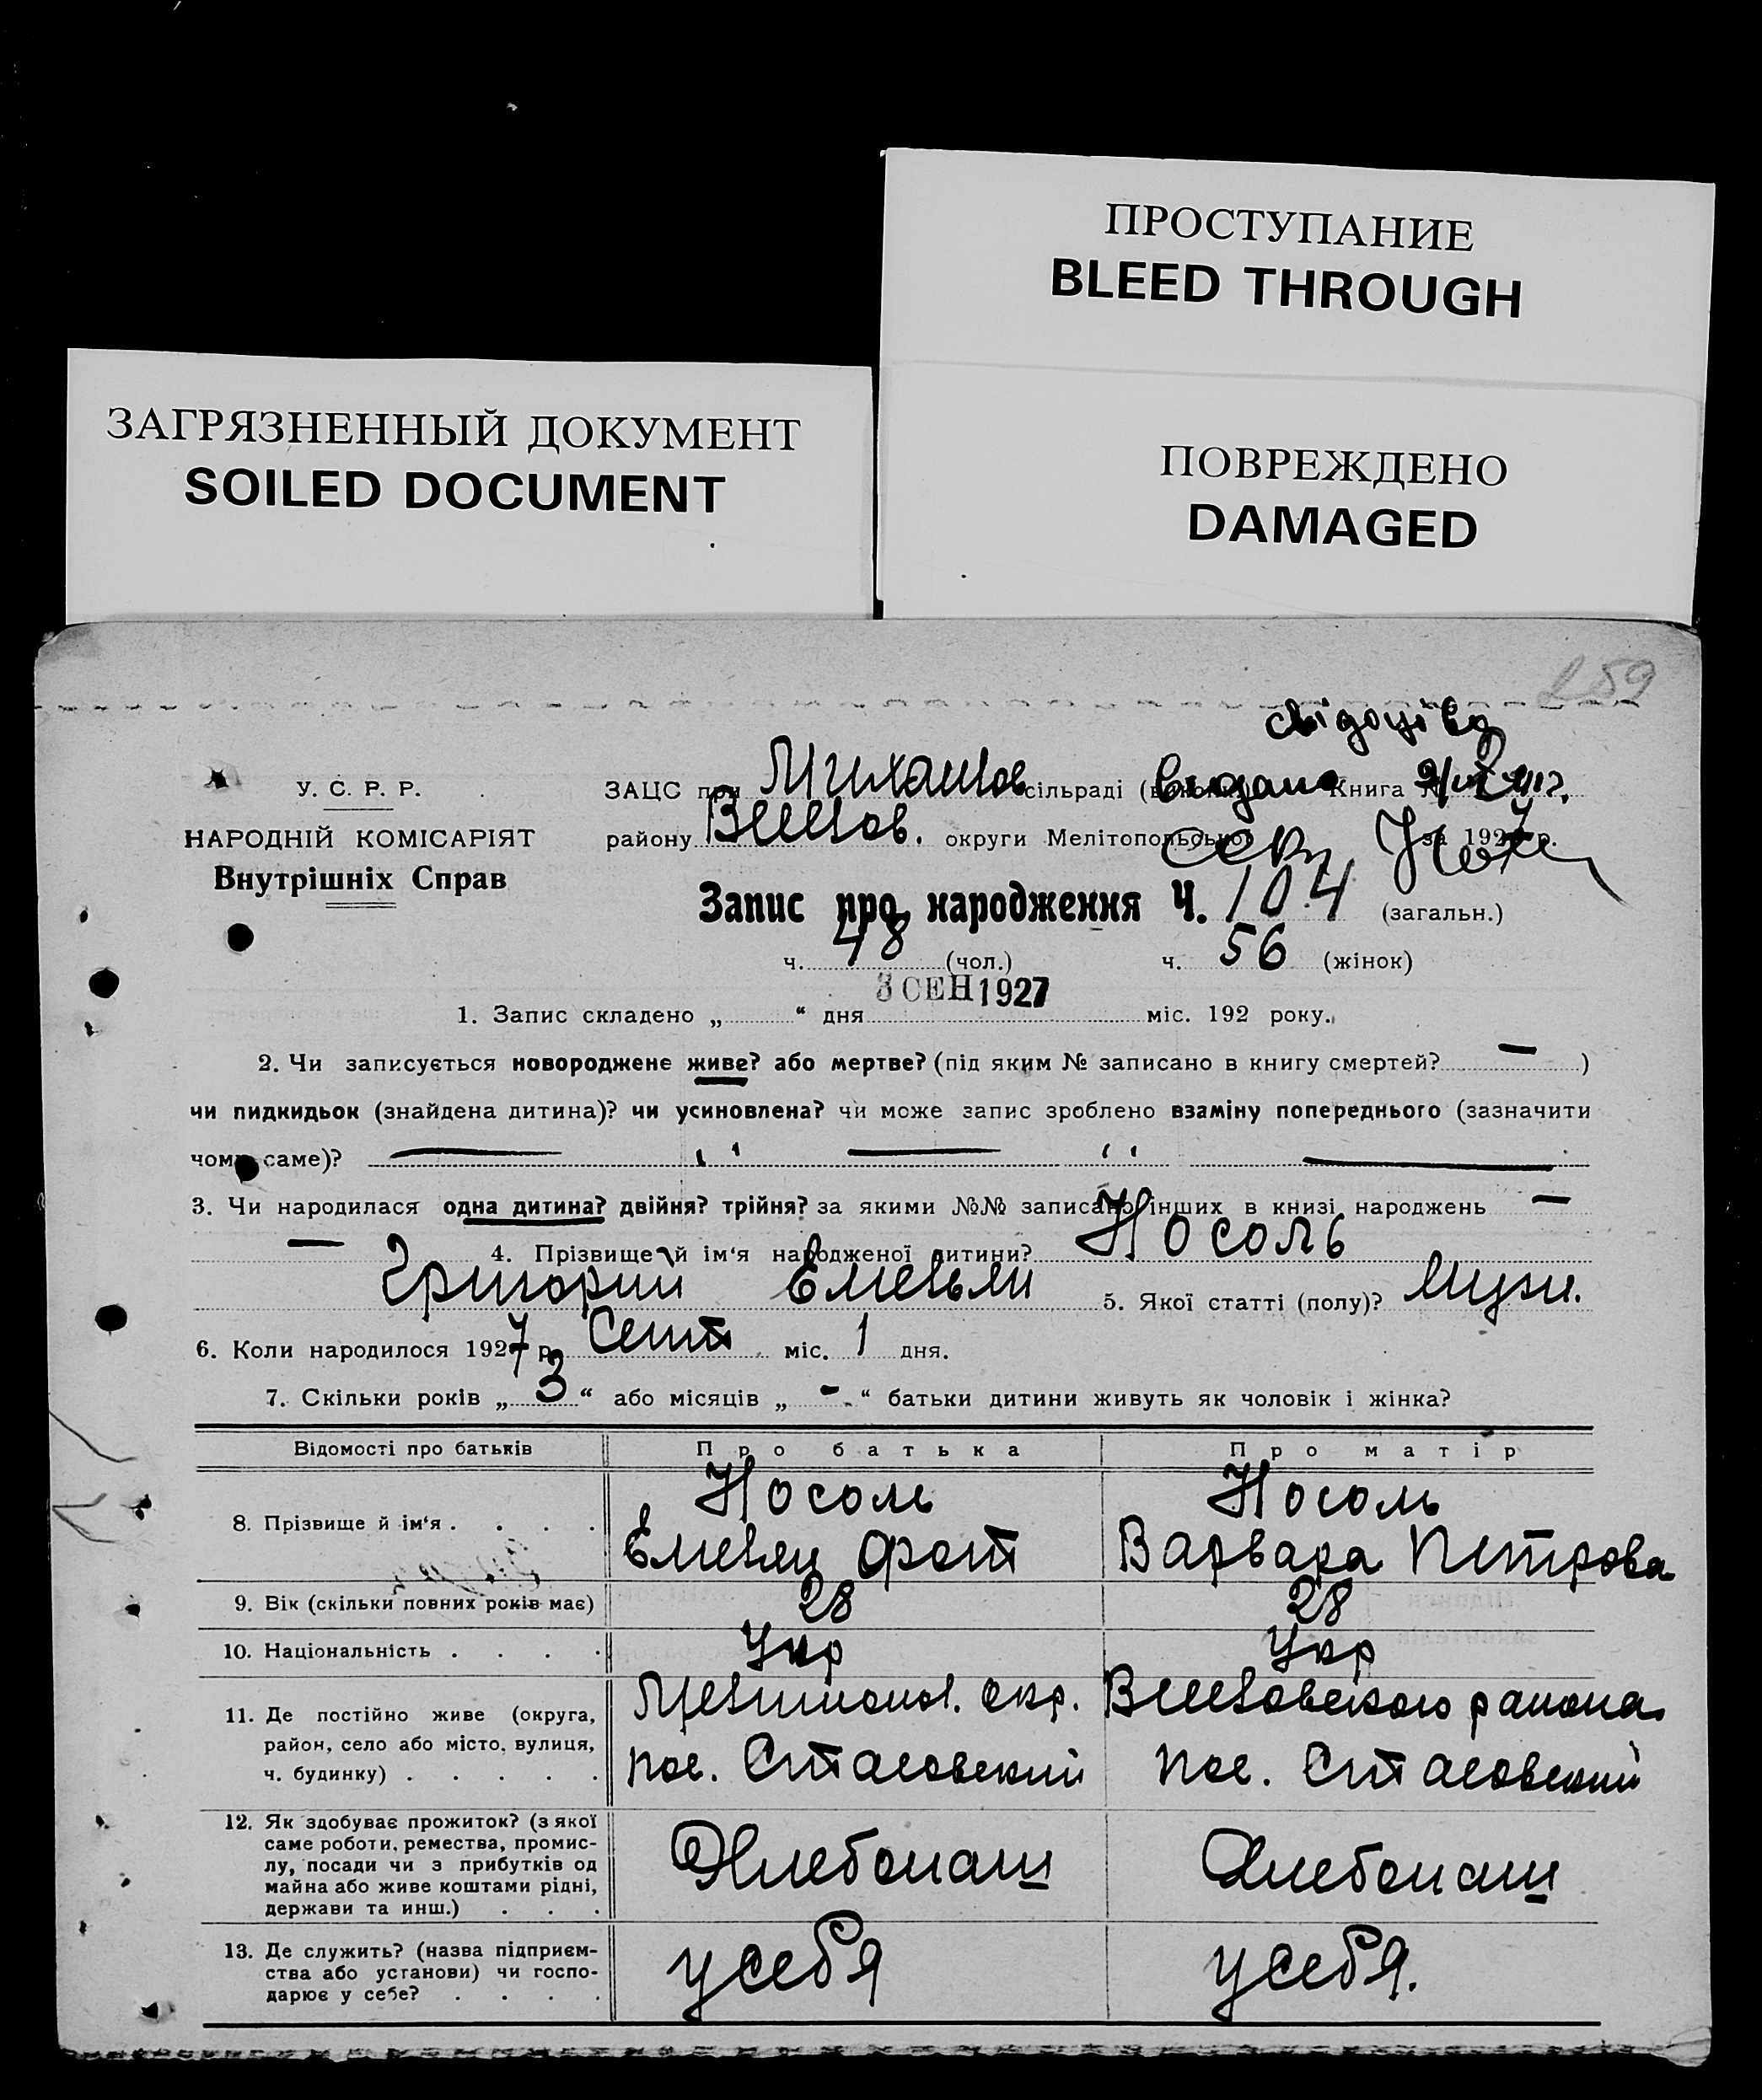 ПРОСТУПАНИЕ
BLEED THROUGH
ЗАГРЯЗНЕННЫЙ ДОКУМЕНТ
SOILED DOCUMENT
ПОВРЕЖДЕНО
DAMAGED
259
У. С. Р. Р.
НАРОДНІЙ КОМІСАРІЯТ
Внутрішніх Справ
ЗАЦС при Михайлов сільраді видано Книга
району округи Мелітопольської за 1927 р.
Запис про народження Ч. 104 (загальн.)
ч. 48 (чол.) ч. 56 (жінок)
3 СЕН 1927
1. Запис складено „ “ дня міс. 192 року.
2. Чи записується новороджене живе? або мертве? (під яким № записано в книгу смертей? — )
чи пидкидьок (знайдена дитина)? чи усиновлена? чи може запис зроблено взаміну попереднього (зазначити
чому саме)? — " — " —
3. Чи народилася одна дитина? двійня? трійня? за якими №№ записано інших в книзі народжень —
— 4. Прізвище й ім‘я народженої дитини? Носоль
Григории Емельян 5. Якої статті (полу)? Муж.
6. Коли народилося 1927 р. Сент міс. 1 дня.
7. Скільки років „ 3 “ або місяців „ - “ батьки дитини живуть як чоловік і жінка?
Відомості про батьків Про батька Про матір
8. Прізвище й ім‘я . . . . Носоль Носоль
Емельян Варвара Петрова
9. Вік (скільки повних років має) 28 28
10. Національність . . . . Укр Укр
11. Де постійно живе (округа,
район, село або місто, вулиця,
ч. будинку) . . . . .
Мелитопол. окр. района
пос. Стасовский пос. Стасовский
12. Як здобуває прожиток? (з якої
саме роботи, ремества, промис-
лу, посади чи з прибутків од
майна або живе коштами рідні,
держави та инш.) . . .
Хлебопаш Хлебопаш
13. Де служить? (назва підприєм-
ства або установи) чи госпо-
дарює у себе? . . . .
у себя у себя.